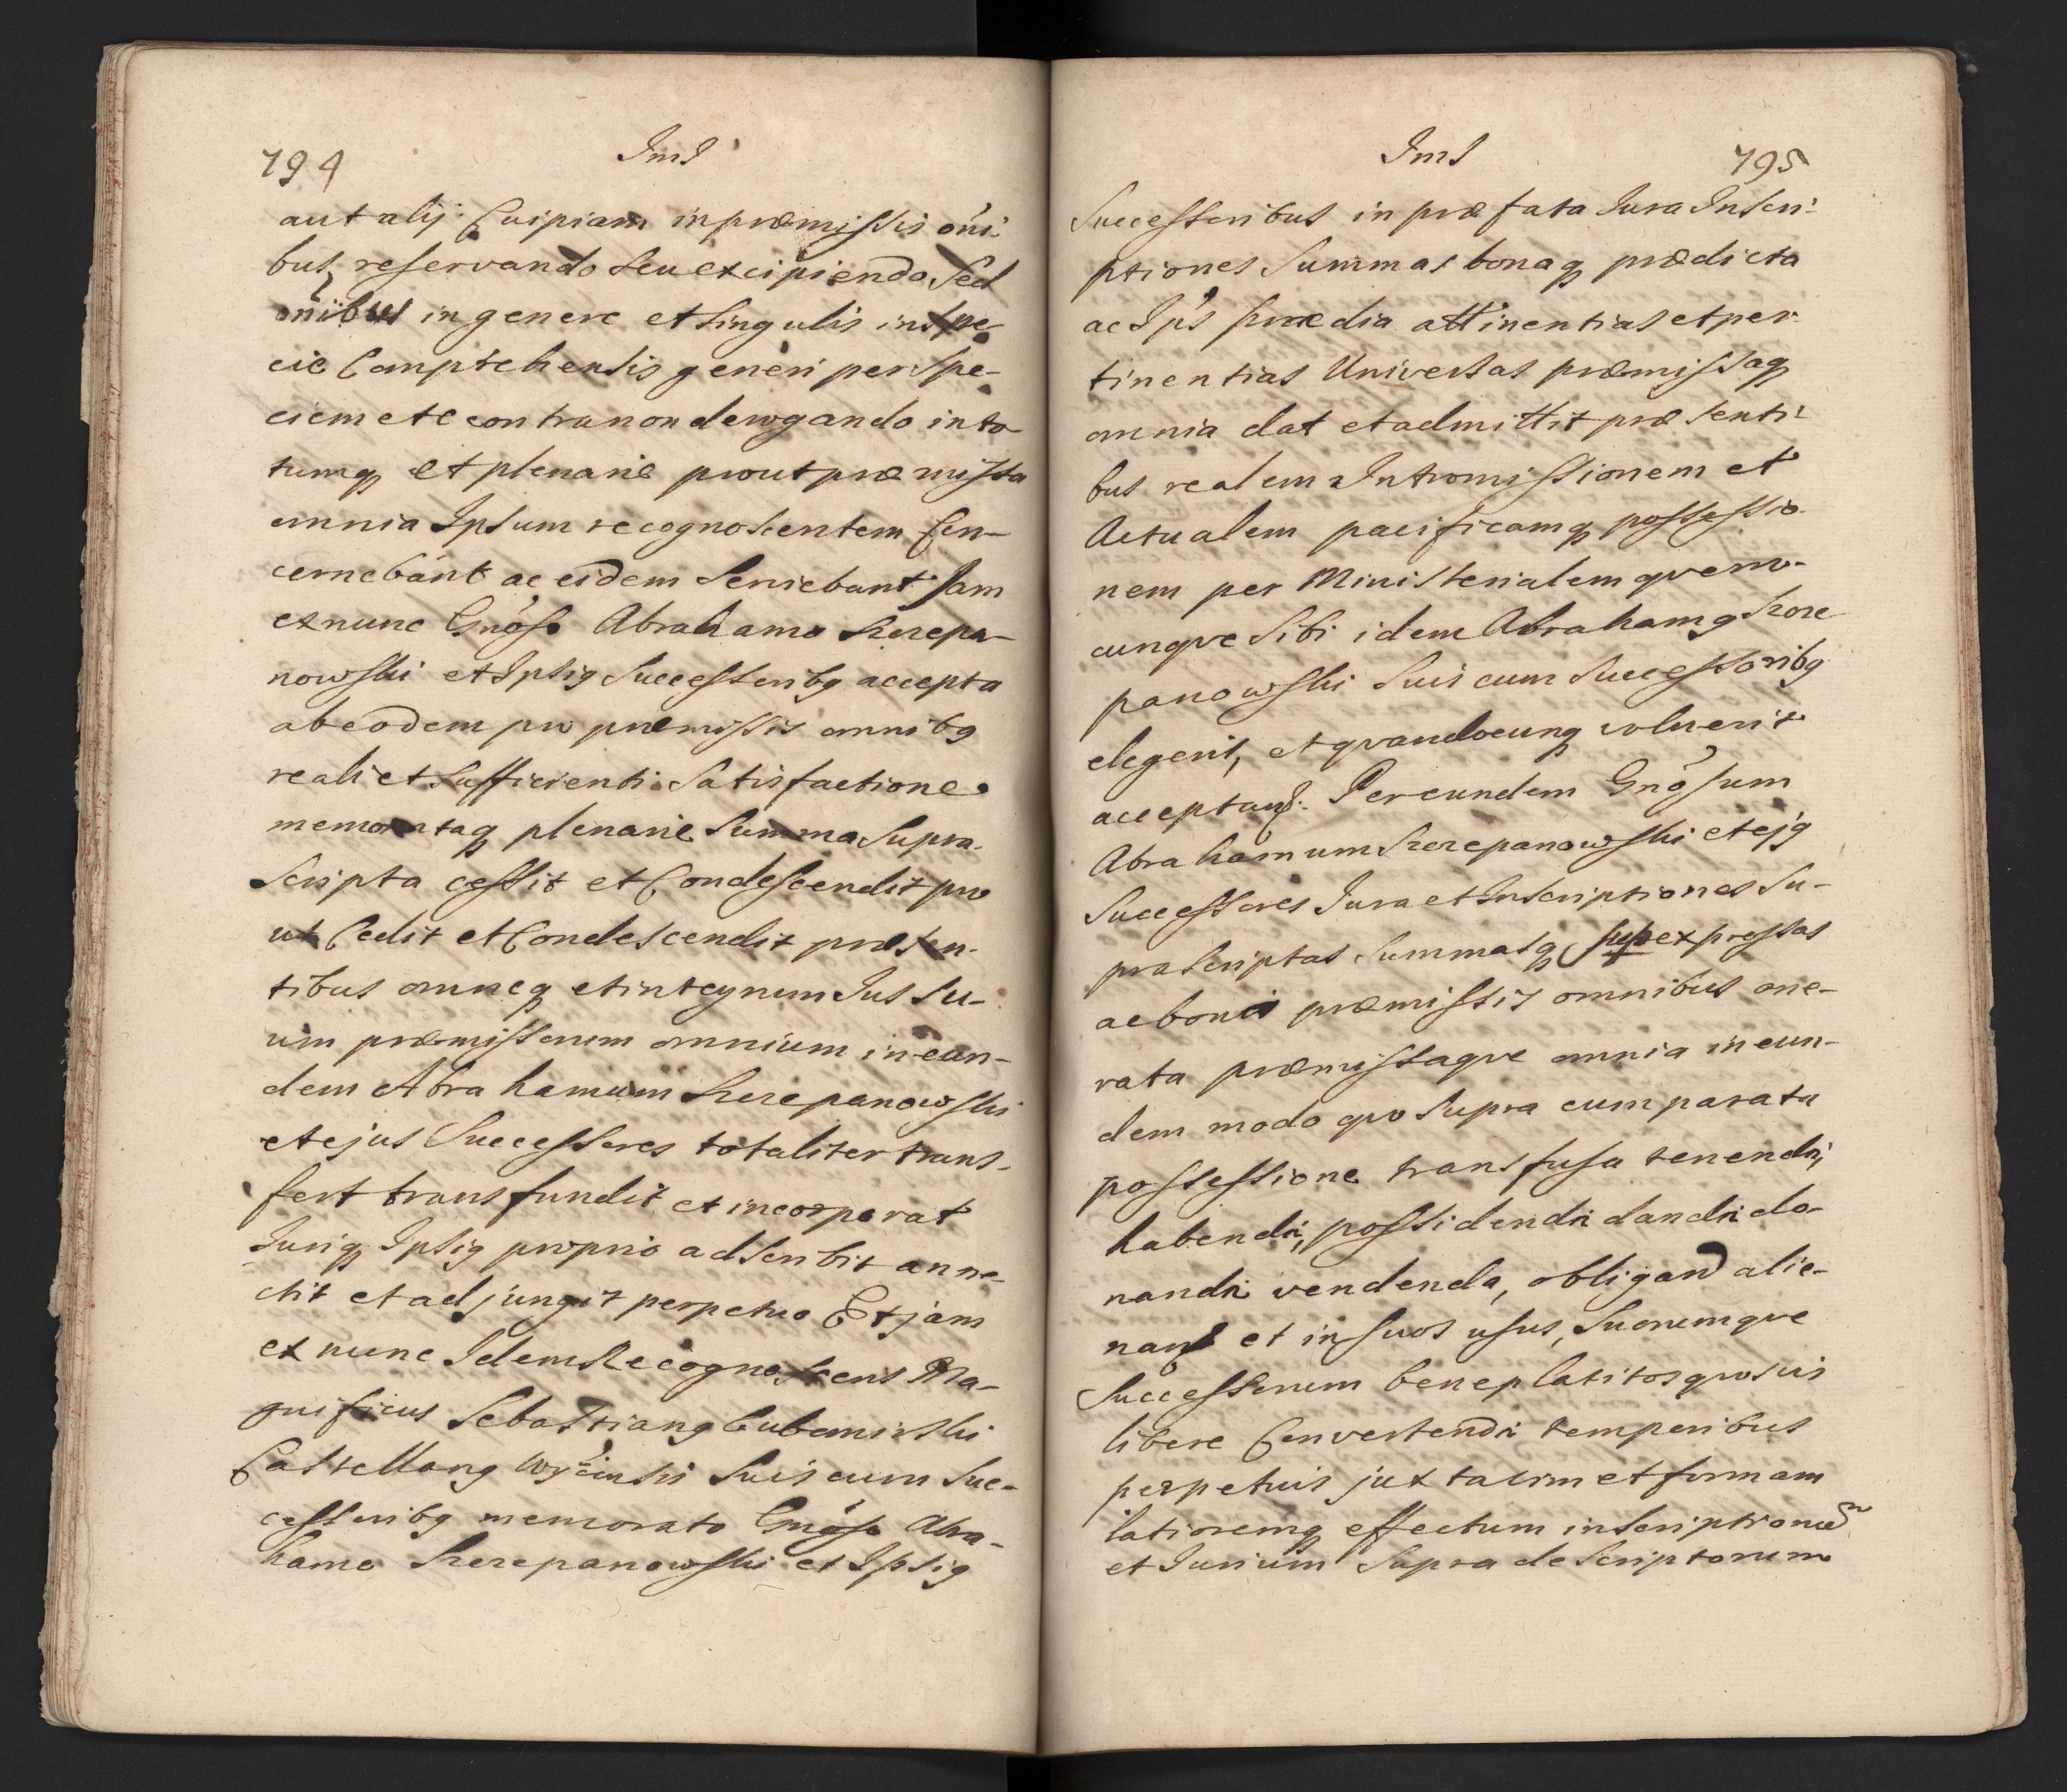 794
JmJ
aut alij Cuipiam in præmissis oni-
bus reservando seu excipiendo, Sed
onibus in genere et singulis in spe-
cie Comprehensis generi per spe-
ciem et e contra non derogando in to-
tumq et plenarie prout præmissa
omnia Ipsum recognoscentem Con-
cernebant ac eidem serviebant Jam
ex nunc Gnoso Abrahamo Szczepa-
nowski et Ipsig Successoribg accepta
ab eodem pro præmissis omnibg
reali et sufficienti Satisfactione
memorataq plenarie Summa supra
scripta cessit et Condescendit pro
ut Cedit et Condescendit præsen-
tibus omneq et integrum Jus su-
um præmissorum omnium in eun-
dem Abrahamum Szczepanowski
et ejus Successores totaliter trans-
fert transfundit et incorporat
Juriq Ipsig proprio adscribit anne-
ctit et adjungit perpetuo Et jam
ex nunc Idem Recognoscens Ma-
gnificus Sebastiang Lubomirski
Castellang Woÿciensis suis cum Suc-
cessoribg memorato Gnoso Abra-
hamo Szczepanowski et Ipsig
JmJ
795
Successoribus in præfata Jura Inscri-
ptiones Summas bonaq prædicta
ac Ips prædia attinentias et per-
tinentias Universas præmissaq
omnia dat et admittit præsenti-
bus realem Intromissionem et
Actualem pacificamq possessio-
nem per Ministerialem quem-
cunque sibi idem Abrahamg Szcze
panowski suis cum Successoribg
elegerit, et quandocunq voluerit
acceptand. Per eundem Gnosum
Abrahamum Szczepanowski et ejg
Successores Jura et Inscriptiones su-
prascriptas Summasq sup expressas
ac bona præmissis omnibus one-
rata præmissaque omnia in eun-
dem modo quo supra cum parata
possessione transfusa tenendi,
habendi, possidendi dandi do-
nandi vendenda, obligand alie-
nand et in suos usus, Suorumque
Successorum beneplacitos quosvis
libere Convertendi temporibus
perpetuis juxta vim et formam
latioremq effectum inscriptionu
et Jurium supra descriptorum